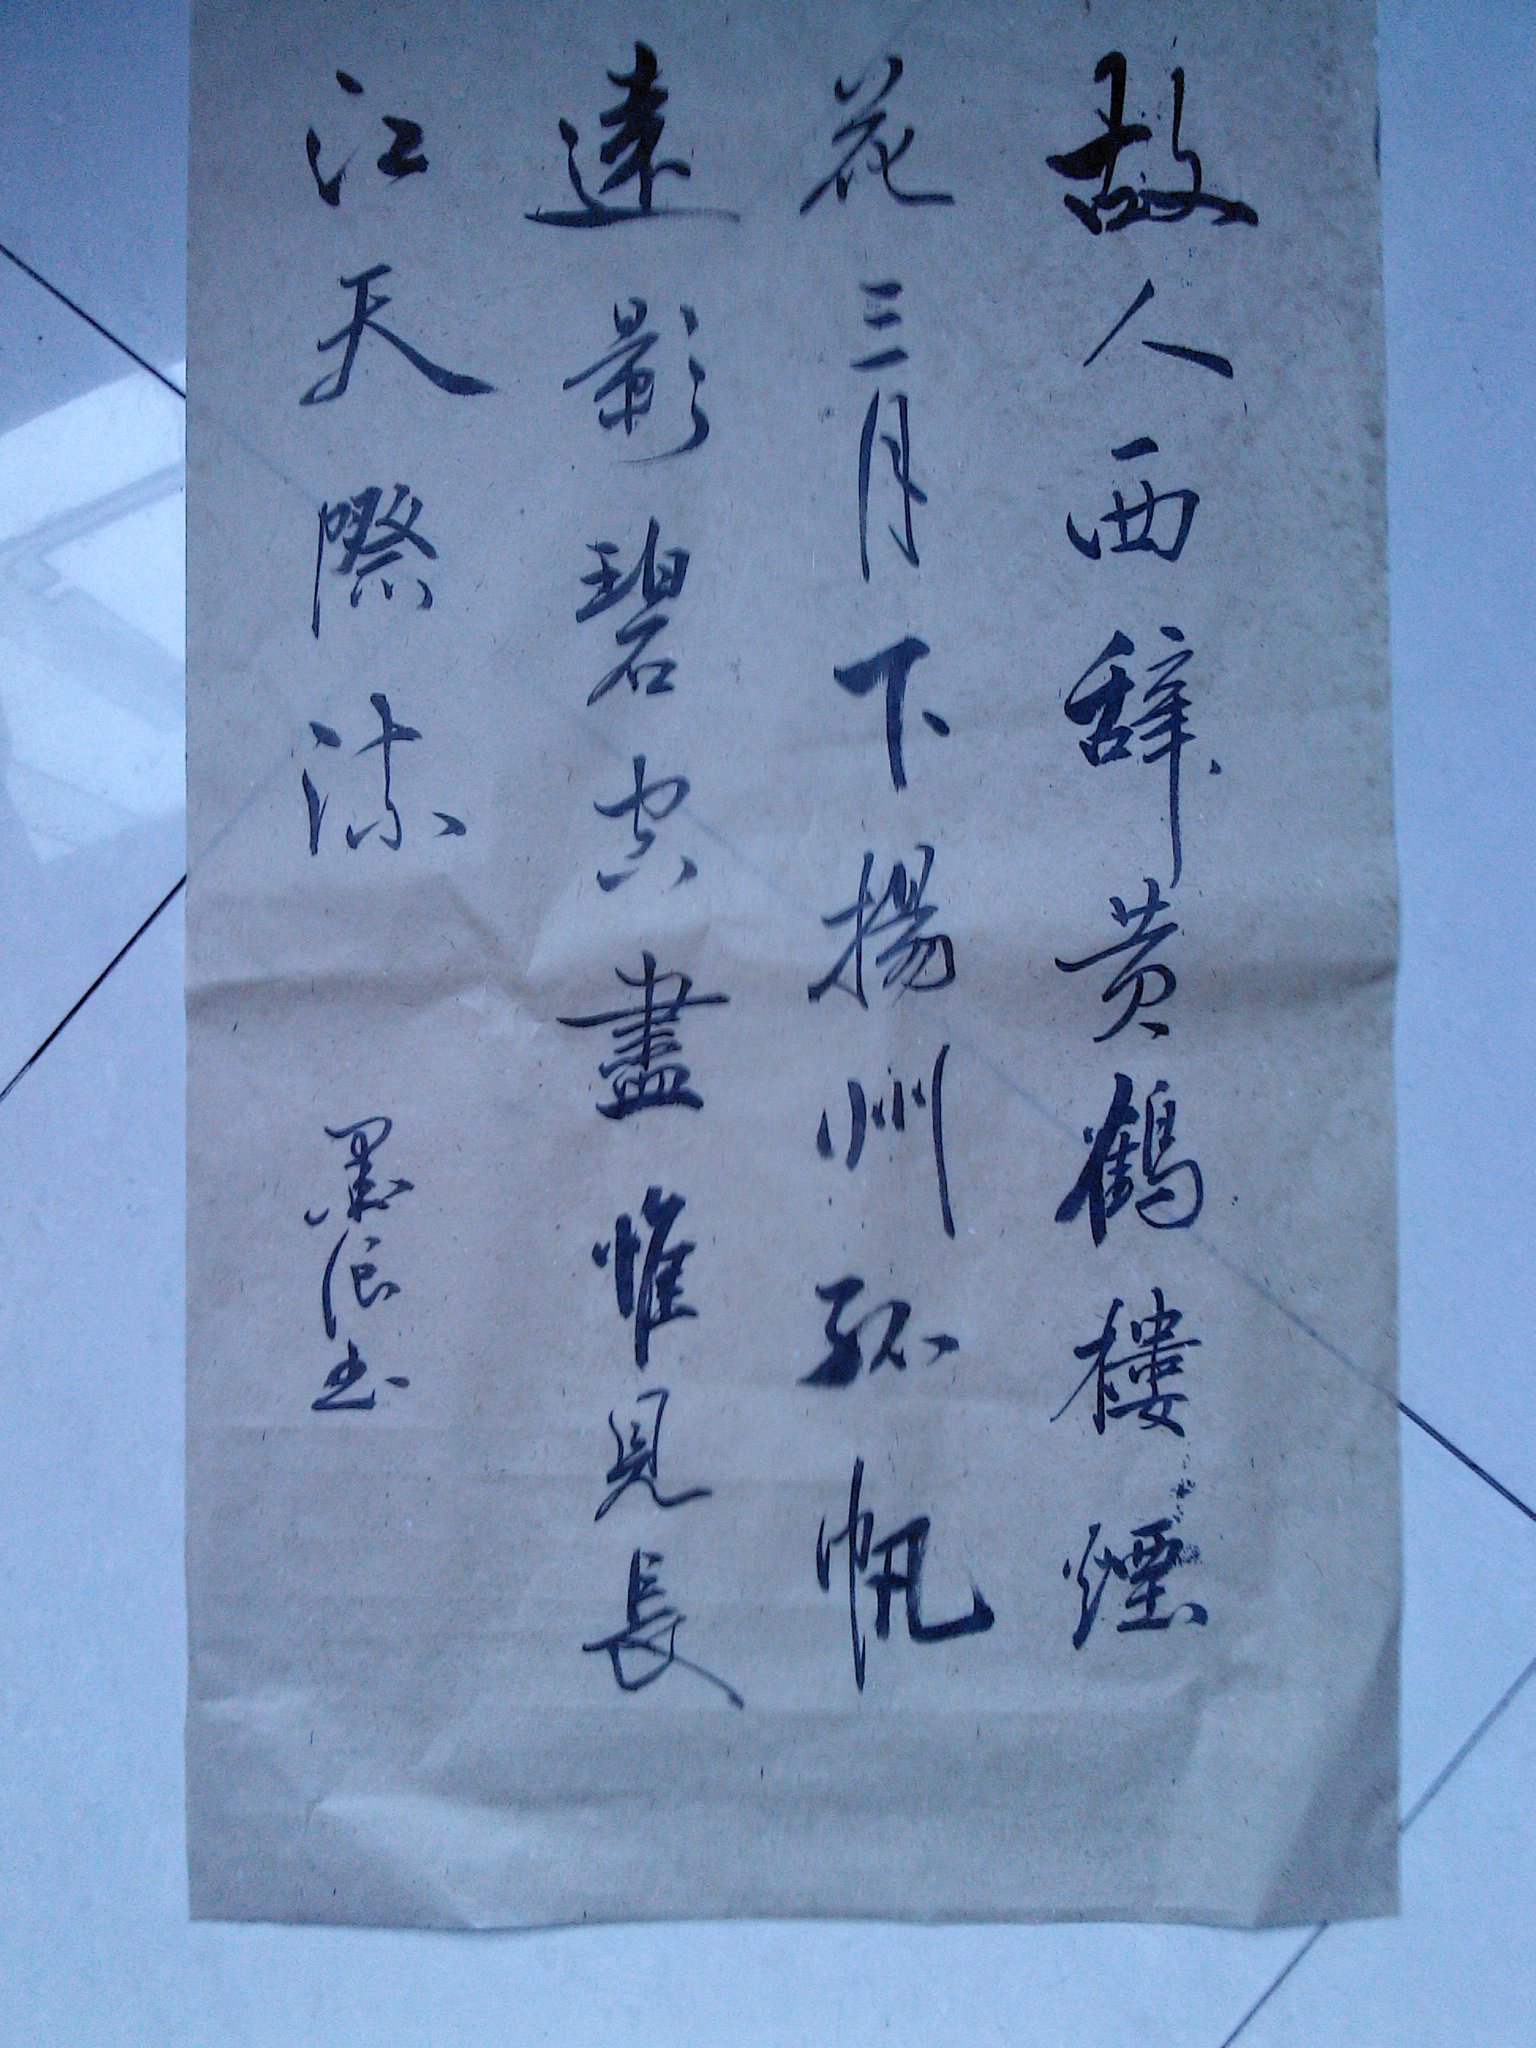 故人西辞黄鶴樓煙
花三月下揚州孤帆
遠影碧空盡惟見長
江天際流
墨痕书